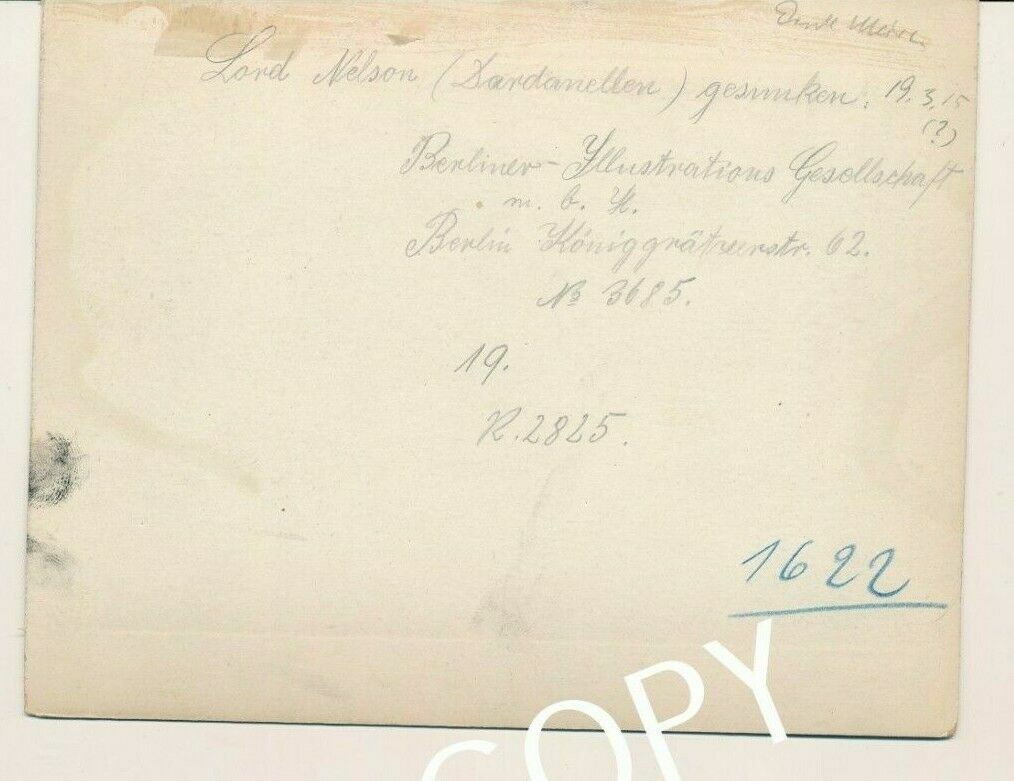 Lord Nelson (Dardanellen) gesunken. 19.3.15
(?)
Berliner-Illustrations Gesellschaft
m. b. H.
Berlin Königgrätzerstr. 62.
No 3685.
19.
R. 2825.
1622
COPY